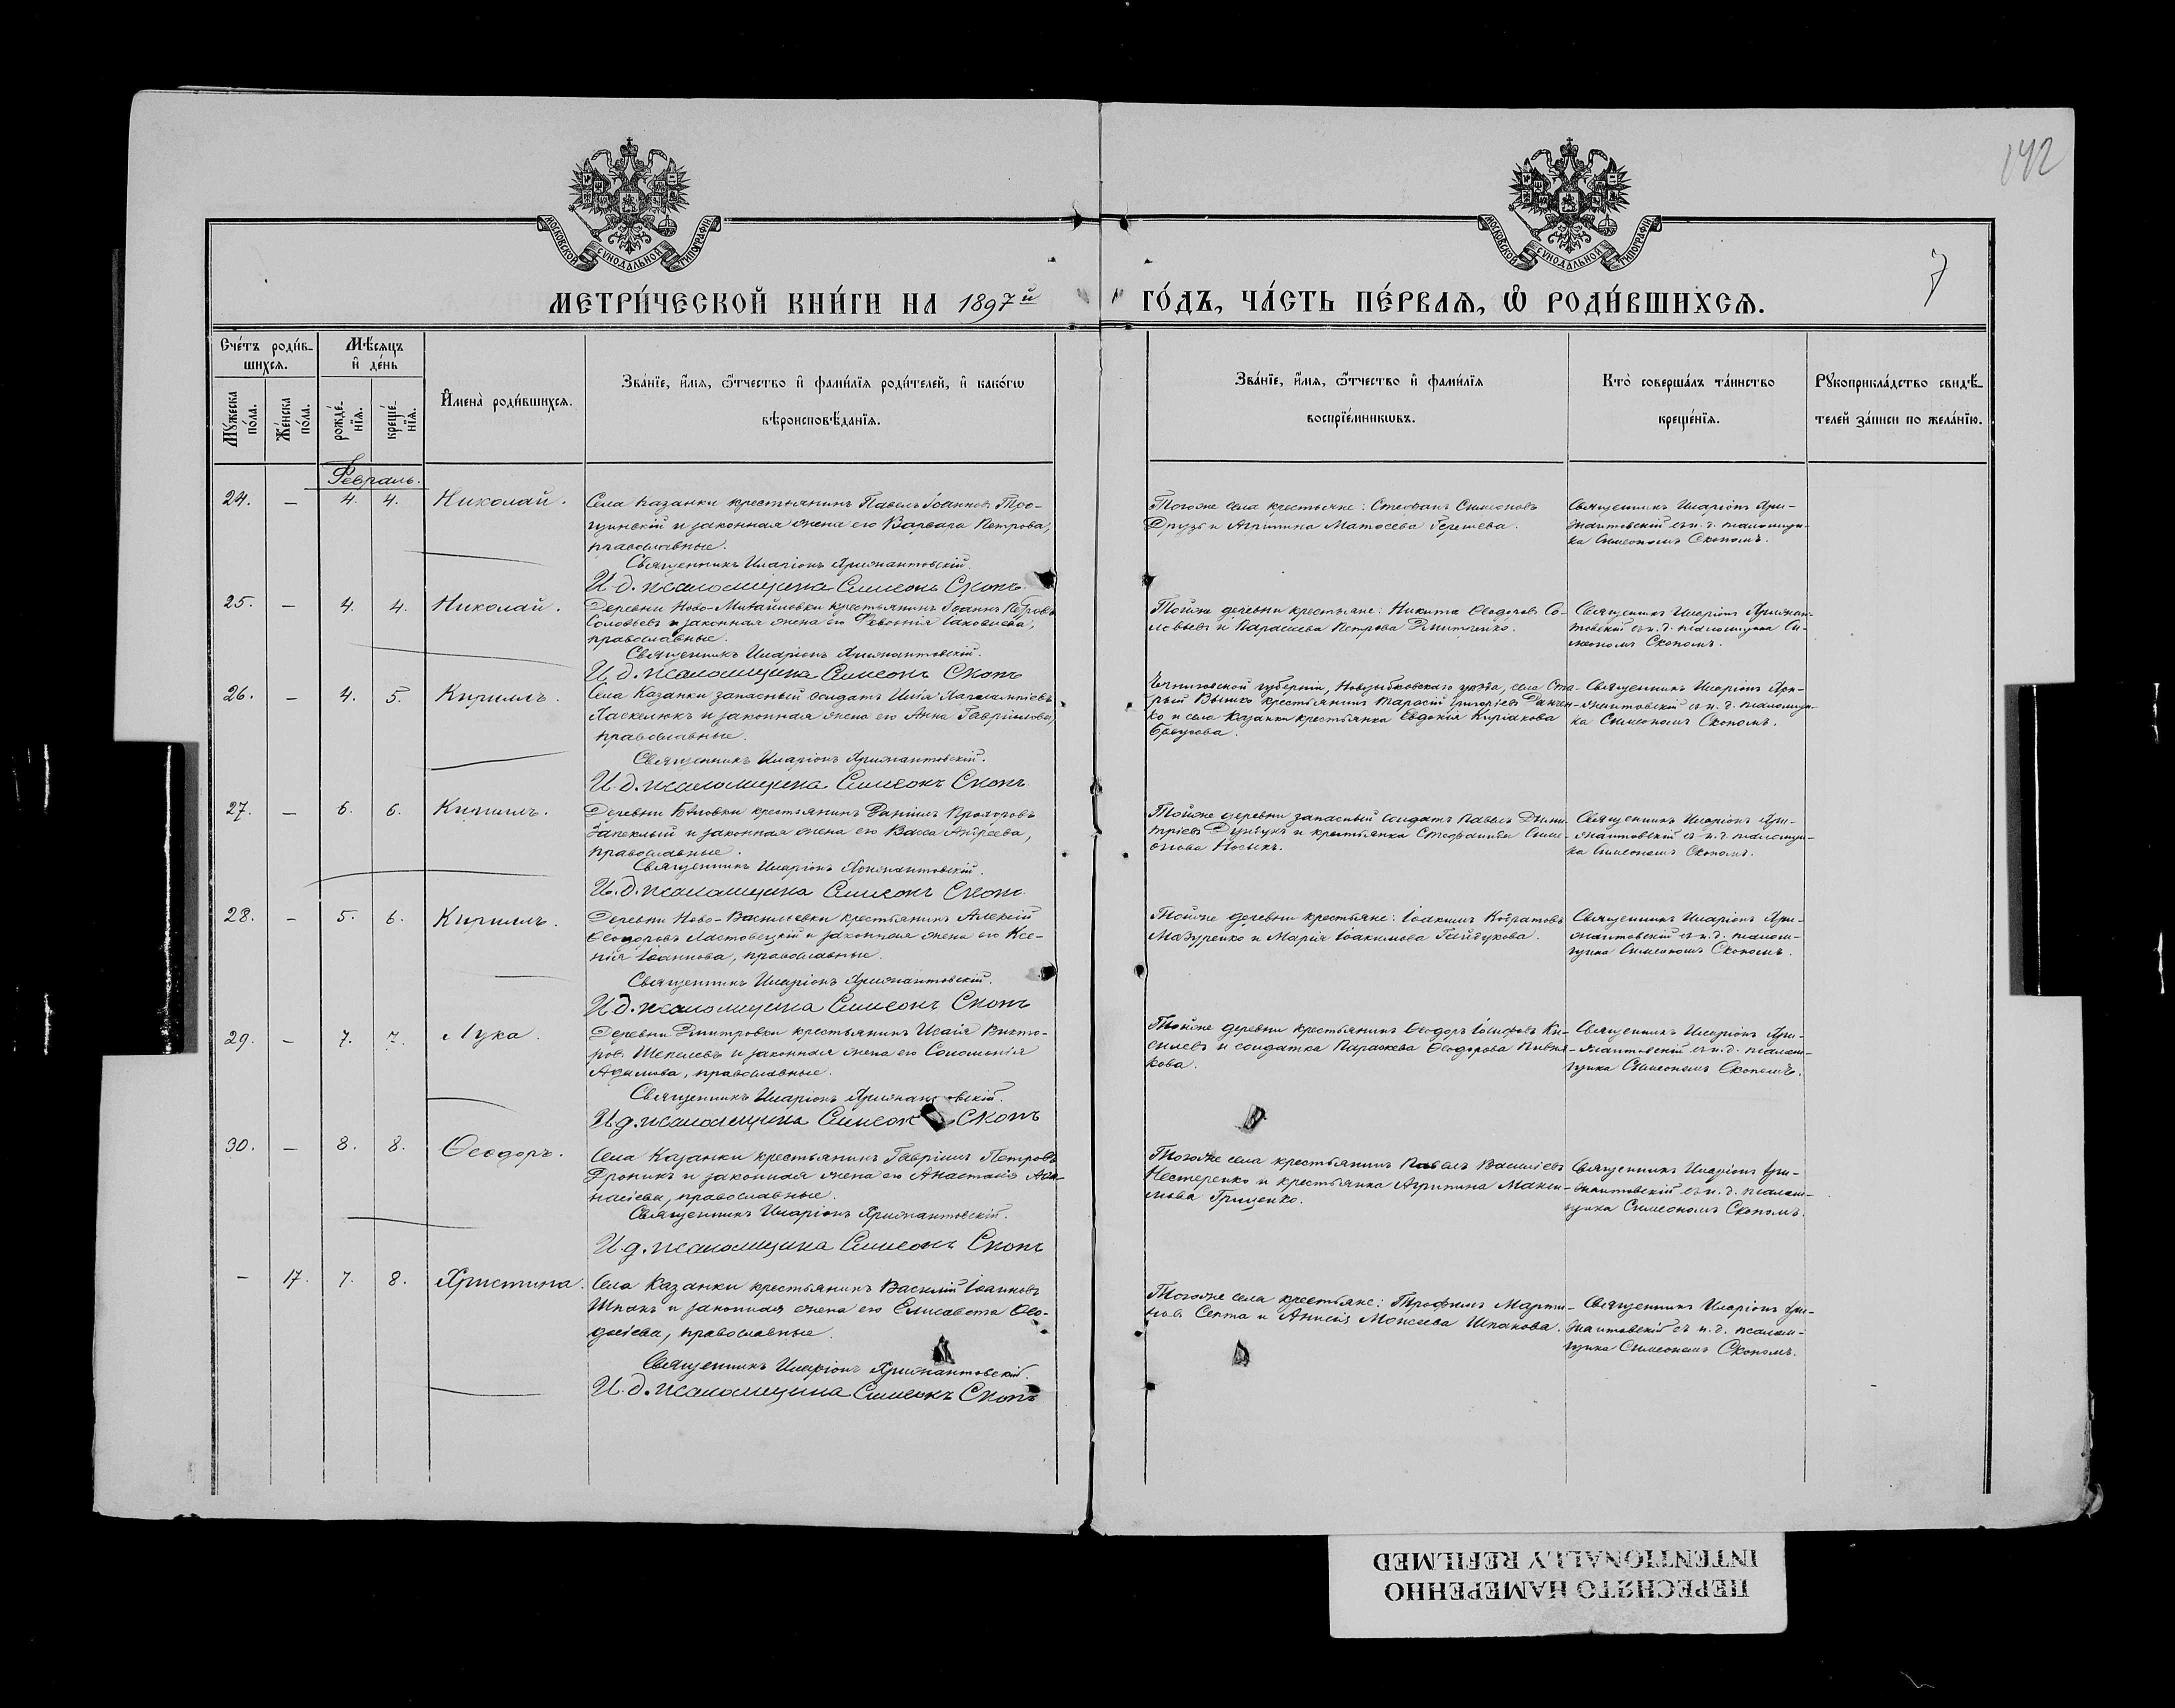 142
7
МОСКОВСКОЙ СѴНОДАЛЬНОЙ ТИПОГРАФІИ
МОСКОВСКОЙ СѴНОДАЛЬНОЙ ТИПОГРАФІИ
МЕТРИ́ЧЕСКОЙ КНИ́ГИ НА 1897й ГО́ДЪ, ЧА́СТЬ ПЕ́РВАЯ, Ѿ РОДИ́ВШИХСЯ.
Сче́тъ роди́в-
шихся.
Мѣ́сяцъ
и̂ де́нь
Му́жеска
по́ла.
Же́нска
по́ла.
рожде́-
нїя.
креще́-
нїя.
И̂мена̀ роди́вшихся.
Зва́нїе, и̂́мя, ѿ́тчество и̂ фами́лїя роди́телей, и̂ како́гѡ
вѣроисповѣ́данїя.
Зва́нїе, и̂́мя, ѿ́тчество и̂ фами́лїя
воспрїе́мникѡвъ.
Кто̀ соверша́лъ та́инство
креще́нїя.
Рꙋкоприкла́дство свидѣ́-
телей за́писи по жела́нїю.
Февраль.
24. — 4. 4. Николай.
Села Казанки крестьянинъ Павелъ Іоанновъ Тро-
и законная жена его Варвара Петрова,
православные.
Священникъ Иларіонъ Хрисантовскій.
И. д. псаломщика Симеонъ Скопъ
Тогоже села крестьяне: Стефанъ Симеоновъ
Друзь и Агрипина Матѳеева
Священникъ Иларіонъ Хри-
сантовскій съ и. д. псаломщи-
ка Симеономъ Скопомъ.
25. — 4. 4. Николай.
Деревни Ново-Михайловки крестьянинъ Іоаннъ Петровъ
Соловьевъ и законная жена его Февронія Іаковлева,
православные.
Священникъ Иларіонъ Хрисантовскій.
И. д. псаломщика Симеонъ Скопъ
Тойже деревни крестьяне: Никита Ѳеодоровъ Со-
ловьевъ и Параскева Петрова Дмитренко.
Священникъ Иларіонъ Хрисан-
товскій съ и. д. псаломщика Си-
меономъ Скопомъ.
26. — 4. 5. Кириллъ.
Села Казанки запасный солдатъ Илія Харлампіевъ
и законная жена его Анна Гавріилова,
православные.
Священникъ Иларіонъ Хрисантовскій.
И. д. псаломщика Симеонъ Скопъ
Черниговской губерніи, Новозыбковскаго уѣзда, села Ста-
рый Вышко крестьянинъ Тарасій Григоріевъ Данчен-
ко и села Казанки крестьянка Евдокія Киріакова
Священникъ Иларіонъ Хри-
сантовскій съ и. д. псаломщи-
ка Симеономъ Скопомъ.
27. — 6. 6. Кириллъ.
Деревни Бѣловки крестьянинъ Даніилъ Прохоровъ
Запеклый и законная жена его Васса Андреева,
православные.
Священникъ Иларіонъ Хрисантовскій.
И. д. псаломщика Симеонъ Скопъ
Тойже деревни запасный солдатъ Павелъ Дими-
тріевъ и крестьянка Стефанида Симе-
онова Носыкъ.
Священникъ Иларіонъ Хри-
сантовскій съ и. д. псаломщи-
ка Симеономъ Скопомъ.
28. — 5. 6. Кириллъ.
Деревни Ново-Василевки крестьянинъ Алексій
Ѳеодоровъ Ластовецкій и законная жена его Ксе-
нія Іоаннова, православные.
Священникъ Иларіонъ Хрисантовскій.
И. д. псаломщика Симеонъ Скопъ
Тойже деревни крестьяне: Іоакимъ Кодратовъ
Мазуренко и Марія Іоакимова Гайдукова.
Священникъ Иларіонъ Хри-
сантовскій съ и. д. псалом-
щика Симеономъ Скопомъ.
29. — 7. 7. Лука.
Деревни Дмитровки крестьянинъ Исаія Викто-
ровъ Шепелевъ и законная жена его Соломонія
Адамова, православные.
Священникъ Иларіонъ Хрисантовскій.
И. д. псаломщика Симеонъ Скопъ
Тойже деревни крестьянинъ Ѳеодоръ Іосифовъ Ки-
силевъ и солдатка Параскева Ѳеодорова Пивня-
кова.
Священникъ Иларіонъ Хри-
сантовскій съ и. д. псалом-
щика Симеономъ Скопомъ.
30. — 8. 8. Ѳеодоръ.
Села Казанки крестьянинъ Гавріилъ Петровъ
Дроникъ и законная жена его Анастасія Аѳа-
насіева, православные.
Священникъ Иларіонъ Хрисантовскій.
И. д. псаломщика Симеонъ Скопъ
Тогоже села крестьянинъ Павелъ Василіевъ
Нестеренко и крестьянка Агрипина Макси-
мова Гриценко.
Священникъ Иларіонъ Хри-
сантовскій съ и. д. псалом-
щика Симеономъ Скопомъ.
— 17. 7. 8. Христина.
Села Казанки крестьянинъ Василій Іоанновъ
Шпакъ и законная жена его Елисавета Ѳео-
досіева, православные.
Священникъ Иларіонъ Хрисантовскій.
И. д. псаломщика Симеонъ Скопъ
Тогоже села крестьяне: Трофимъ Марти-
новъ Септа и Анисія Моисеева Шпакова.
Священникъ Иларіонъ Хри-
сантовскій съ и. д. псалом-
щика Симеономъ Скопомъ.
ПЕРЕСНЯТО НАМЕРЕННО
INTENTIONALLY REFILMED